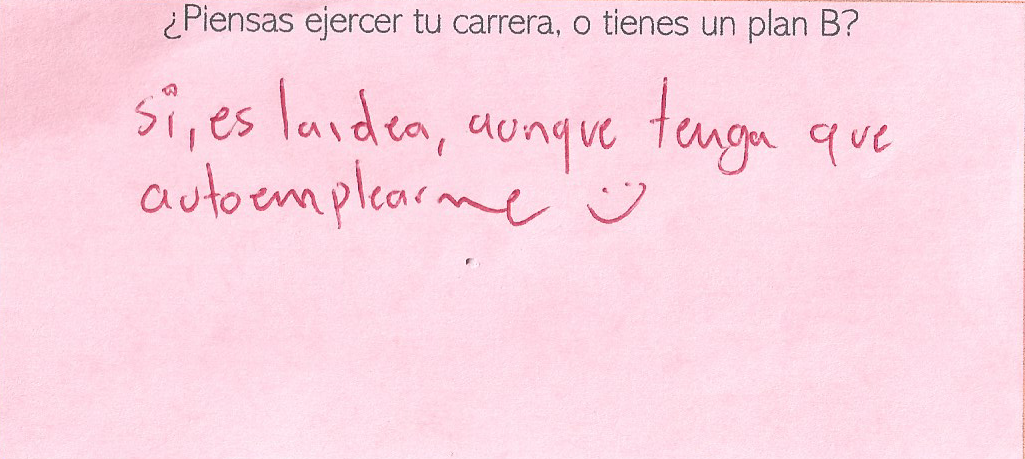 ¿Piensas ejercer tu carrera, o tienes un plan B?
si, es la idea, aunque tenga que
autoemplearme :)